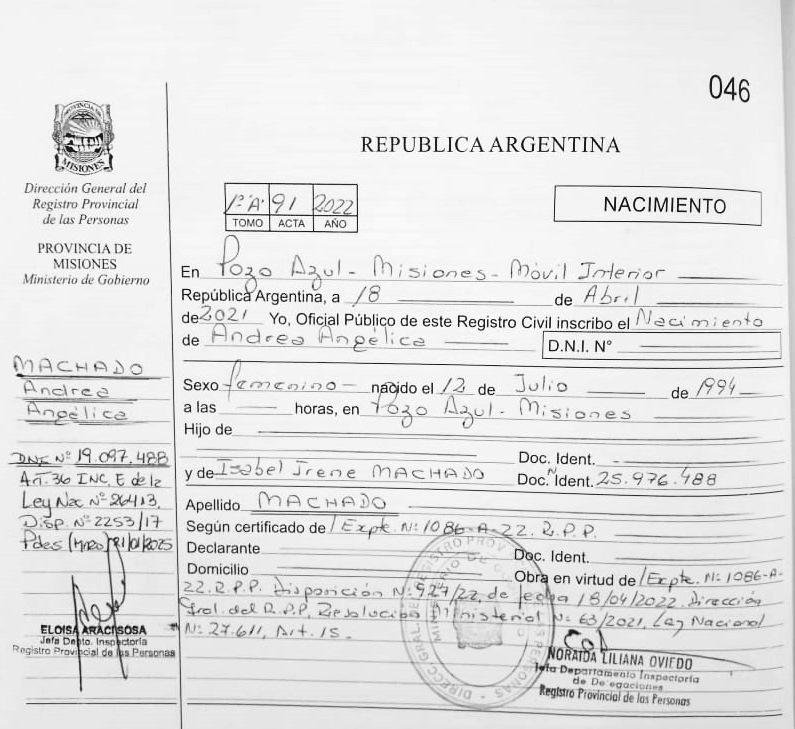 046
PROVINCIA DE
MISIONES
Dirección General del
Registro Provincial
de las Personas
PROVINCIA DE
MISIONES
Ministerio de Gobierno
REPUBLICA ARGENTINA
1º"A" 91 2022
TOMO ACTA AÑO
NACIMIENTO
En Pozo Azul - Misiones - Móvil Interior
República Argentina, a 18 de Abril
de 2021 Yo, Oficial Público de este Registro Civil inscribo el Nacimiento
de Andrea Angélica D.N.I. N°
Sexo femenino - nacido el 12 de Julio de 1994
a las horas, en Pozo Azul - Misiones
Hijo de
Doc. Ident.
y de Isabel Irene MACHADO Doc. Ident. Nº 25.976.488
Apellido MACHADO
Según certificado de / Expte. Nº 1086-A-22. R.P.P.
Declarante Doc. Ident.
Domicilio Obra en virtud de / Expte. Nº 1086-A-
22. R.P.P. Disposición Nº 927/22, de fecha 18/04/2022. Dirección
Gral. del R.P.P. Resolución Ministerial Nº 63/2021, Ley Nacional
Nº 27.611, Art. 15.
NORAIDA LILIANA OVIEDO
Jefa Departamento Inspectoría
de Delegaciones
Registro Provincial de las Personas
MACHADO
Andrea
Angélica
DNI Nº 19.097.488
Art. 36 INC. E de la
Ley Nac Nº 26413.
Disp. Nº 2253/17
Pdas (Mnes)
ELOISA ARACI SOSA
Jefa Depto. Inspectoría
Registro Provincial de las Personas